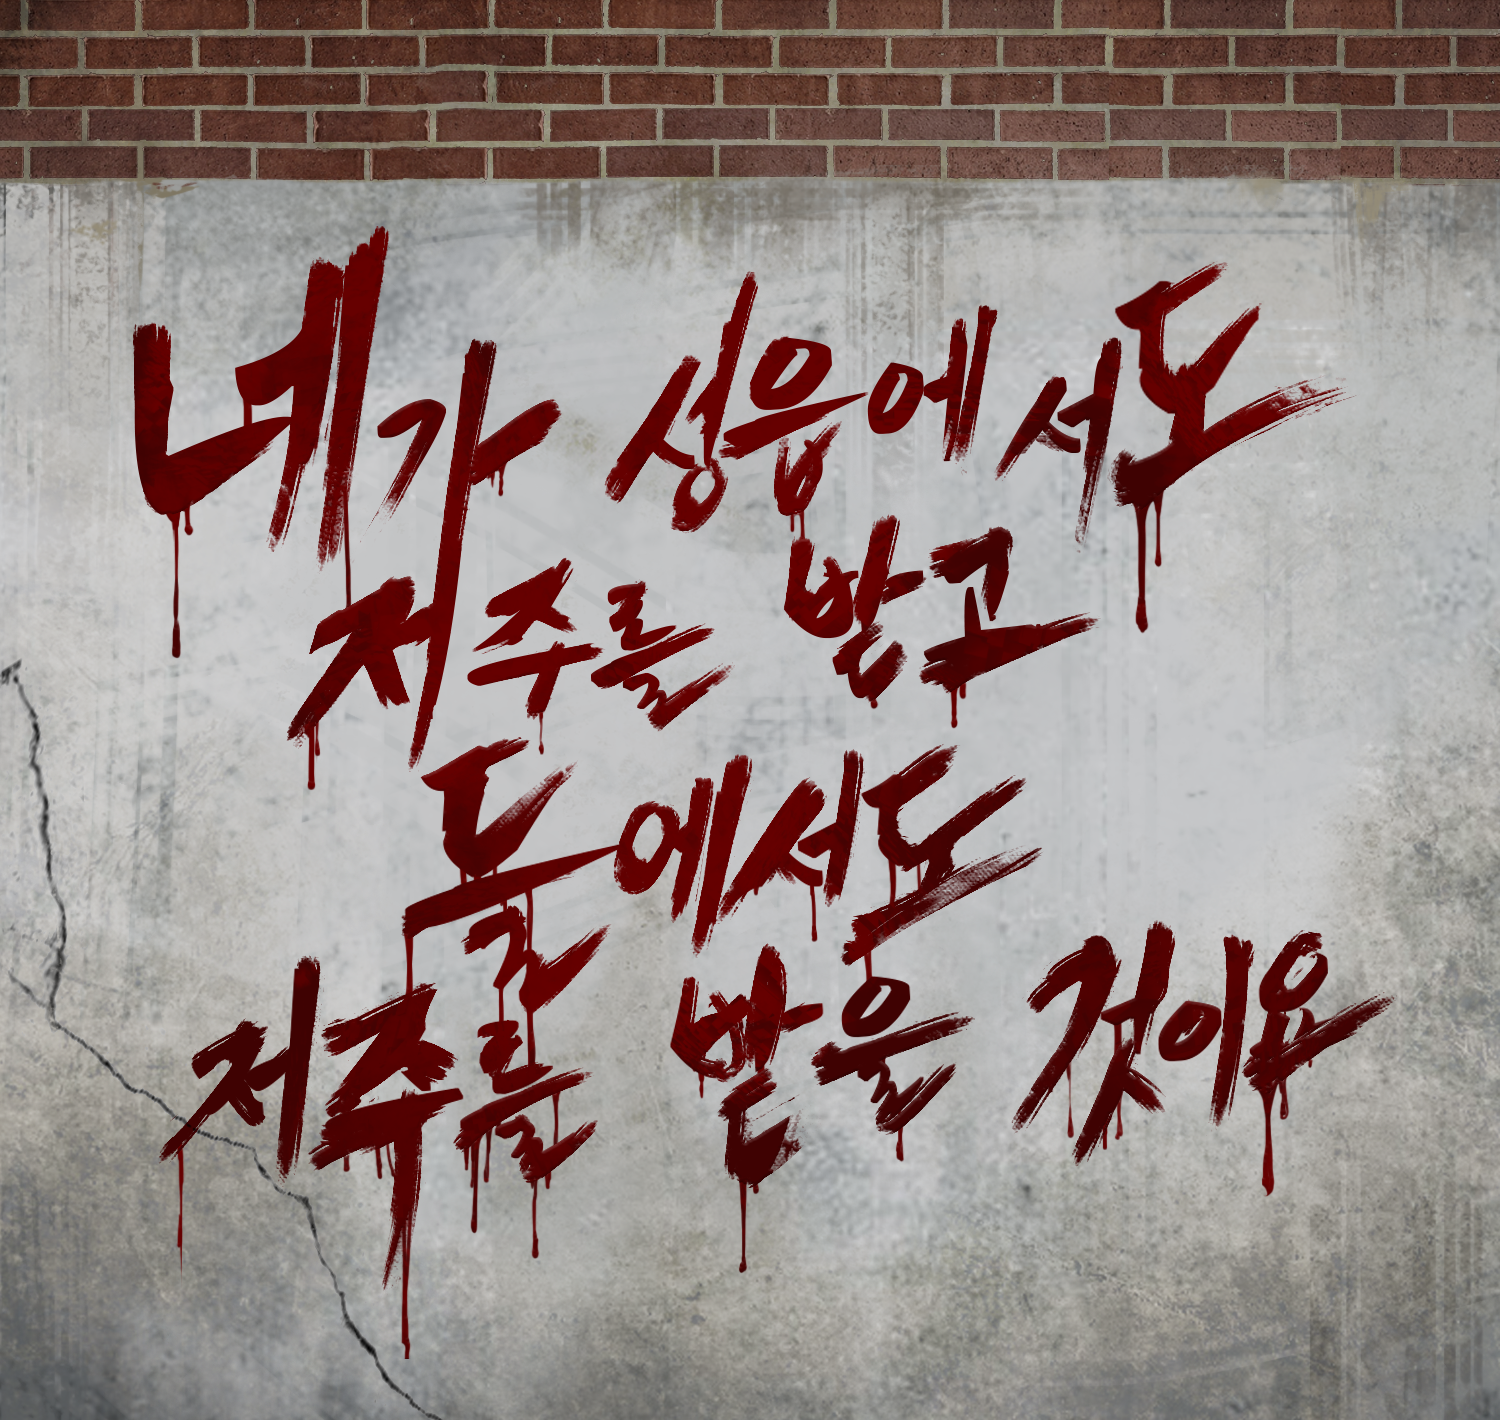 네가 성읍에서도
저주를 받고
들에서도
저주를 받을 것이요